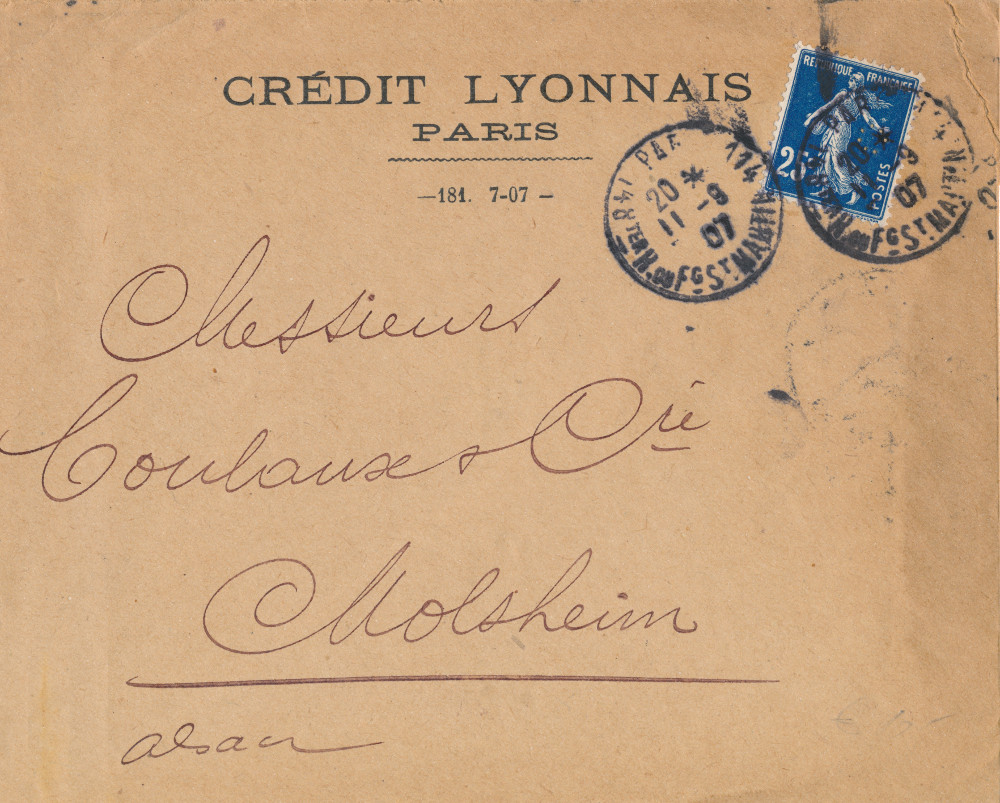 CRÉDIT LYONNAIS
PARIS
—181. 7-07 –
RÉPUBLIQUE FRANÇAISE
25
POSTES
PAR
114
20 * 9
11 07
148TER R. DU FG ST MARTIN
9
07
FG ST MARTIN
Messieurs
Coulaux & Cie
Molsheim
alsace